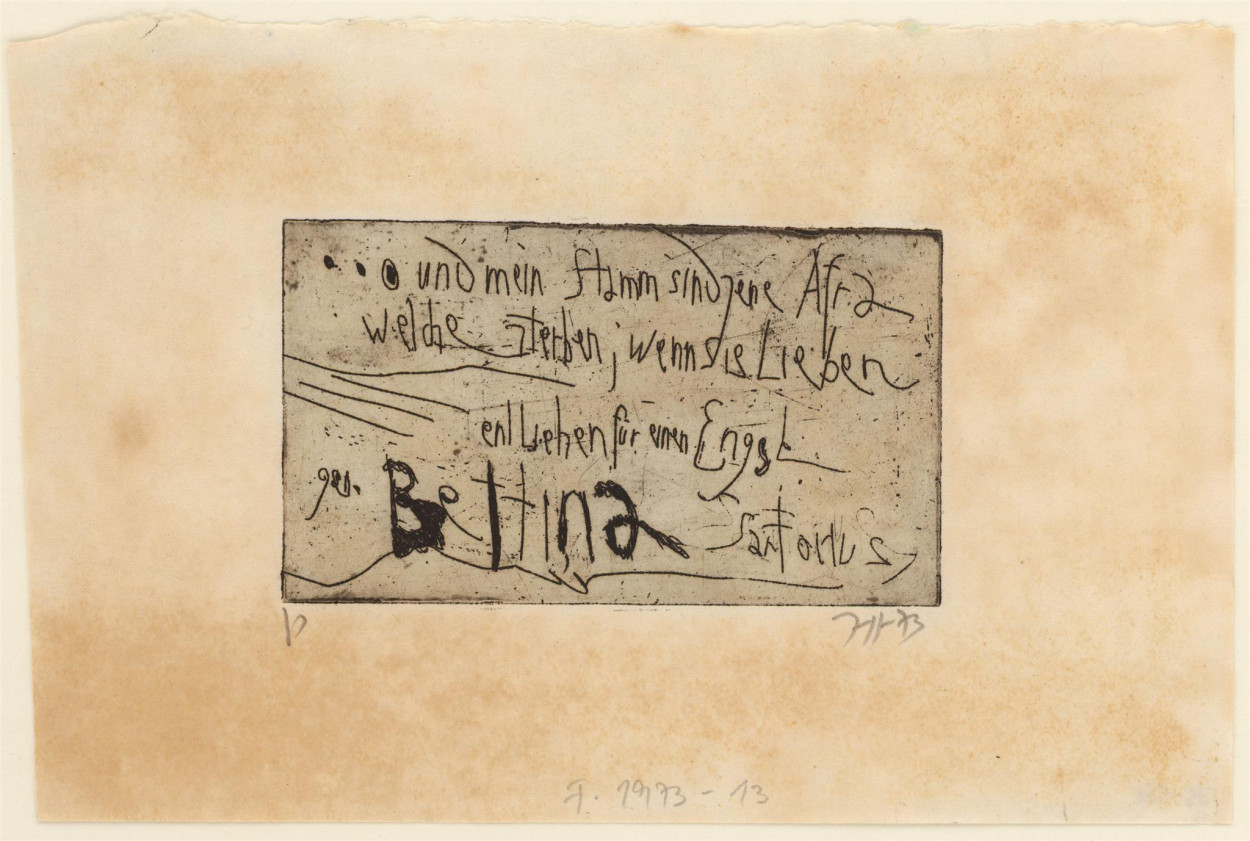 ... und mein Stamm sind jene Afra
welche sterben, wenn sie Lieben
entliehen für einen Engel
gen. Bettina Sartorius
p 73
F. 1973-13